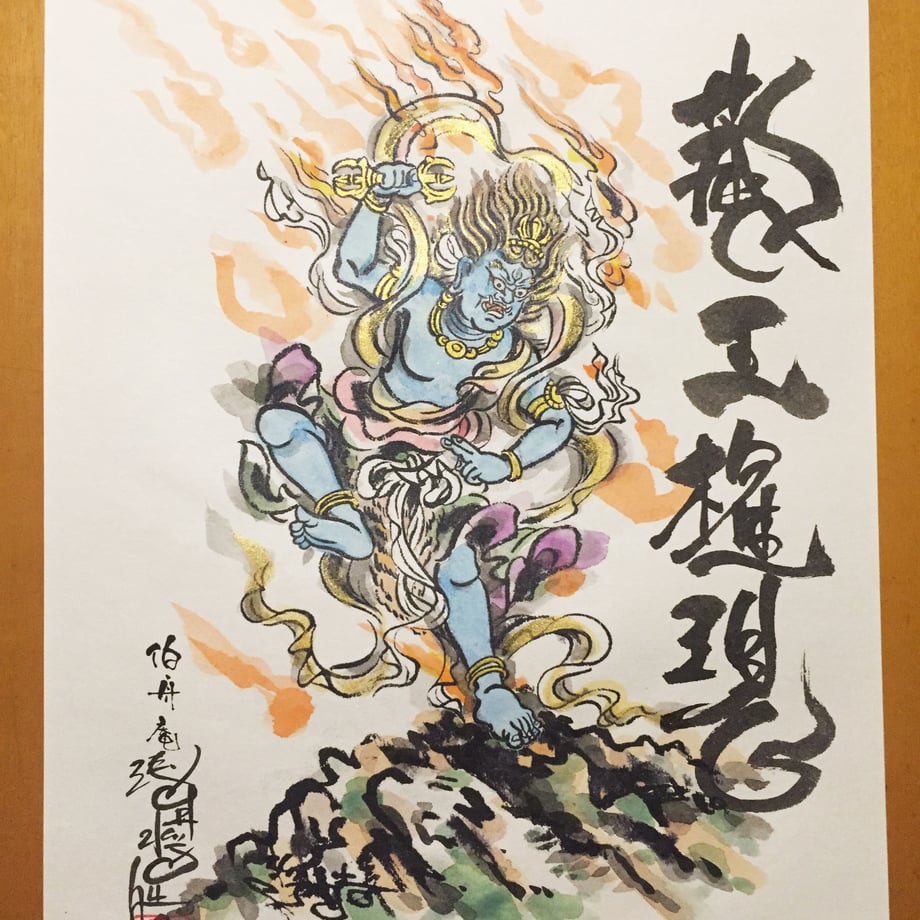 蔵王権現
伯舟庵